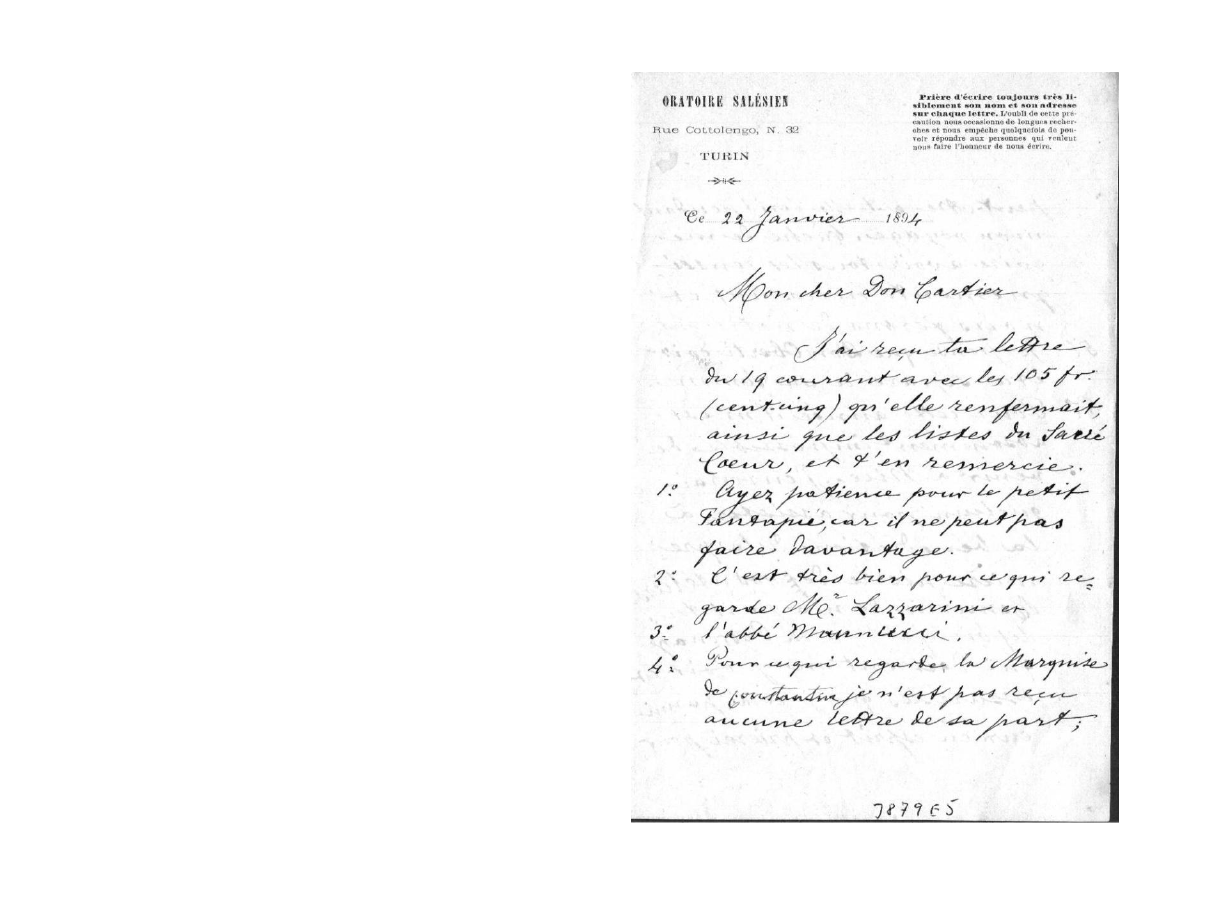 ORATOIRE SALÉSIEN
Rue Cottolengo, N. 32
TURIN
Prière d'écrire toujours très li-
siblement son nom et son adresse
sur chaque lettre. L'oubli de cette pré-
caution nous occasionne de longues recher-
ches et nous empêche quelquefois de pou-
voir répondre aux personnes qui veulent
nous faire l'honneur de nous écrire.
Ce 22 Janvier 1894
Mon cher Don Cartier
J'ai reçu ta lettre
du 19 courant avec les 105 fr.
(cent-cinq) qu'elle renfermait,
ainsi que les listes du Sacré
Coeur, et t'en remercie.
1° Ayez patience pour le petit
Fantapié, car il ne peut pas
faire davantage.
2° C'est très bien pour ce qui re=
garde Mr. Lazzarini et
3° l'abbé
4° Pour ce qui regarde la Marquise
de Constantin je n'est pas reçu
aucune lettre de sa part;
7879 E 5